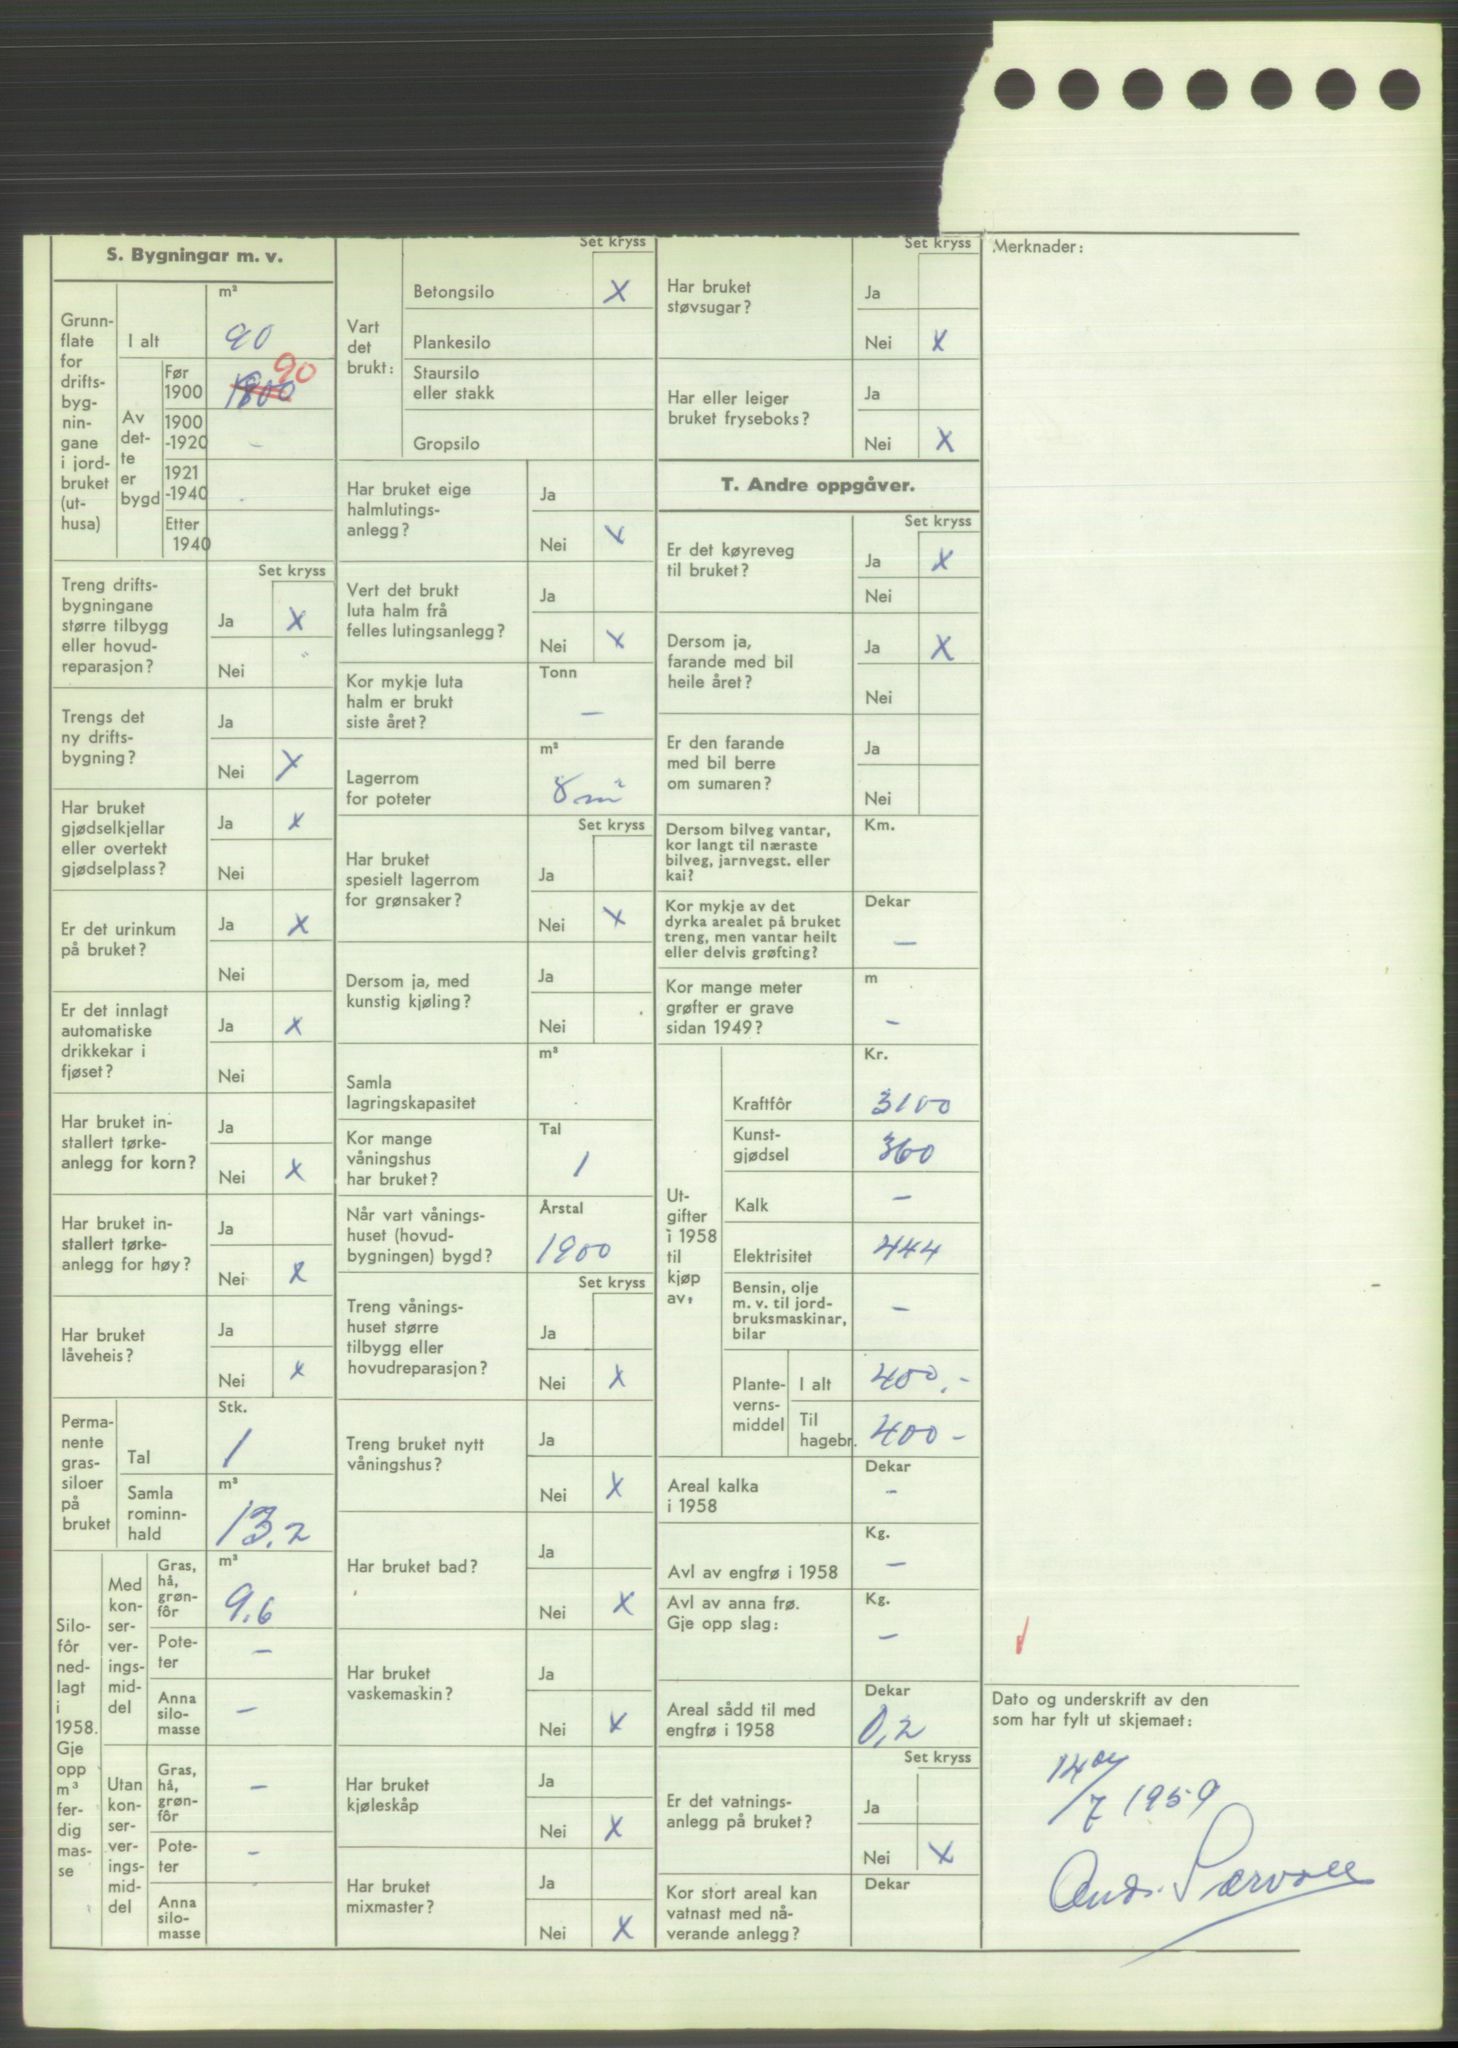 S. Bygningar m. v.
Grunn-
flate
for
drifts-
byg-
nin-
gane
i jord-
bruket
(ut-
husa)
m²
I alt
90
Av
det-
te
er
bygd
Før
1900
1800
90
1900
-1920
-
1921
-1940
Etter
1940
Set kryss
Treng drifts-
bygningane
større tilbygg
eller hovud-
reparasjon?
Ja X
Nei
Trengs det
ny drifts-
bygning?
Ja
Nei X
Har bruket
gjødselkjellar
eller overtekt
gjødselplass?
Ja X
Nei
Er det urinkum
på bruket?
Ja X
Nei
Er det innlagt
automatiske
drikkekar i
fjøset?
Ja X
Nei
Har bruket in-
stallert tørke-
anlegg for korn?
Ja
Nei X
Har bruket in-
stallert tørke-
anlegg for høy?
Ja
Nei X
Har bruket
låveheis?
Ja
Nei X
Perma-
nente
gras-
siloer
på
bruket
Stk.
Tal
1
m³
Samla
rominn-
hald
13,2
Silo-
fôr
ned-
lagt
i
1958.
Gje
opp
m³
fer-
dig
mas-
se
Med
kon-
ser-
ver-
ings-
mid-
del
Gras,
hå,
grøn-
fôr
m³
9,6
Pote-
ter
-
Anna
silo-
masse
-
Utan
kon-
ser-
ver-
ings-
mid-
del
Gras,
hå,
grøn-
fôr
-
Pote-
ter
-
Anna
silo-
masse
Set kryss
Vart
det
brukt:
Betongsilo X
Plankesilo
Staursilo
eller stakk
Gropsilo
Har bruket eige
halmlutings-
anlegg?
Ja
Nei X
Vert det brukt
luta halm frå
felles lutingsanlegg?
Ja
Nei X
Kor mykje luta
halm er brukt
siste året?
Tonn
-
Lagerrom
for poteter
m²
8 m²
Set kryss
Har bruket
spesielt lagerrom
for grønsaker?
Ja
Nei X
Dersom ja, med
kunstig kjøling?
Ja
Nei
Samla
lagringskapasitet
m³
Kor mange
våningshus
har bruket?
Tal
1
Når vart vånings-
huset (hovud-
bygningen) bygd?
Årstal
1900
Set kryss
Treng vånings-
huset større
tilbygg eller
hovudreparasjon?
Ja
Nei X
Treng bruket nytt
våningshus?
Ja
Nei X
Har bruket bad?
Ja
Nei X
Har bruket
vaskemaskin?
Ja
Nei X
Har bruket
kjøleskåp
Ja
Nei X
Har bruket
mixmaster?
Ja
Nei X
Set kryss
Har bruket
støvsugar?
Ja
Nei X
Har eller leiger
bruket fryseboks?
Ja
Nei X
T. Andre oppgåver.
Set kryss
Er det køyreveg
til bruket?
Ja X
Nei
Dersom ja,
farande med bil
heile året?
Ja X
Nei
Er den farande
med bil berre
om sumaren?
Ja
Nei
Dersom bilveg vantar,
kor langt til næraste
bilveg, jarnvegst. eller
kai?
Km.
Kor mykje av det
dyrka arealet på bruket
treng, men vantar heilt
eller delvis grøfting?
Dekar
-
Kor mange meter
grøfter er grave
sidan 1949?
m
-
Ut-
gifter
i 1958
til
kjøp
av:
Kr.
Kraftfôr
3100
Kunst-
gjødsel
360
Kalk
-
Elektrisitet
444
Bensin, olje
m. v. til jord-
bruksmaskinar,
bilar
-
Plante-
verns-
middel
I alt
400,-
Til
hagebr.
400-
Areal kalka
i 1958
Dekar
-
Avl av engfrø i 1958
Kg.
-
Avl av anna frø.
Gje opp slag:
Kg.
-
Areal sådd til med
engfrø i 1958
Dekar
0,2
Set kryss
Er det vatnings-
anlegg på bruket?
Ja
Nei X
Kor stort areal kan
vatnast med nå-
verande anlegg?
Dekar
Merknader:
Dato og underskrift av den
som har fylt ut skjemaet:
/7 1959